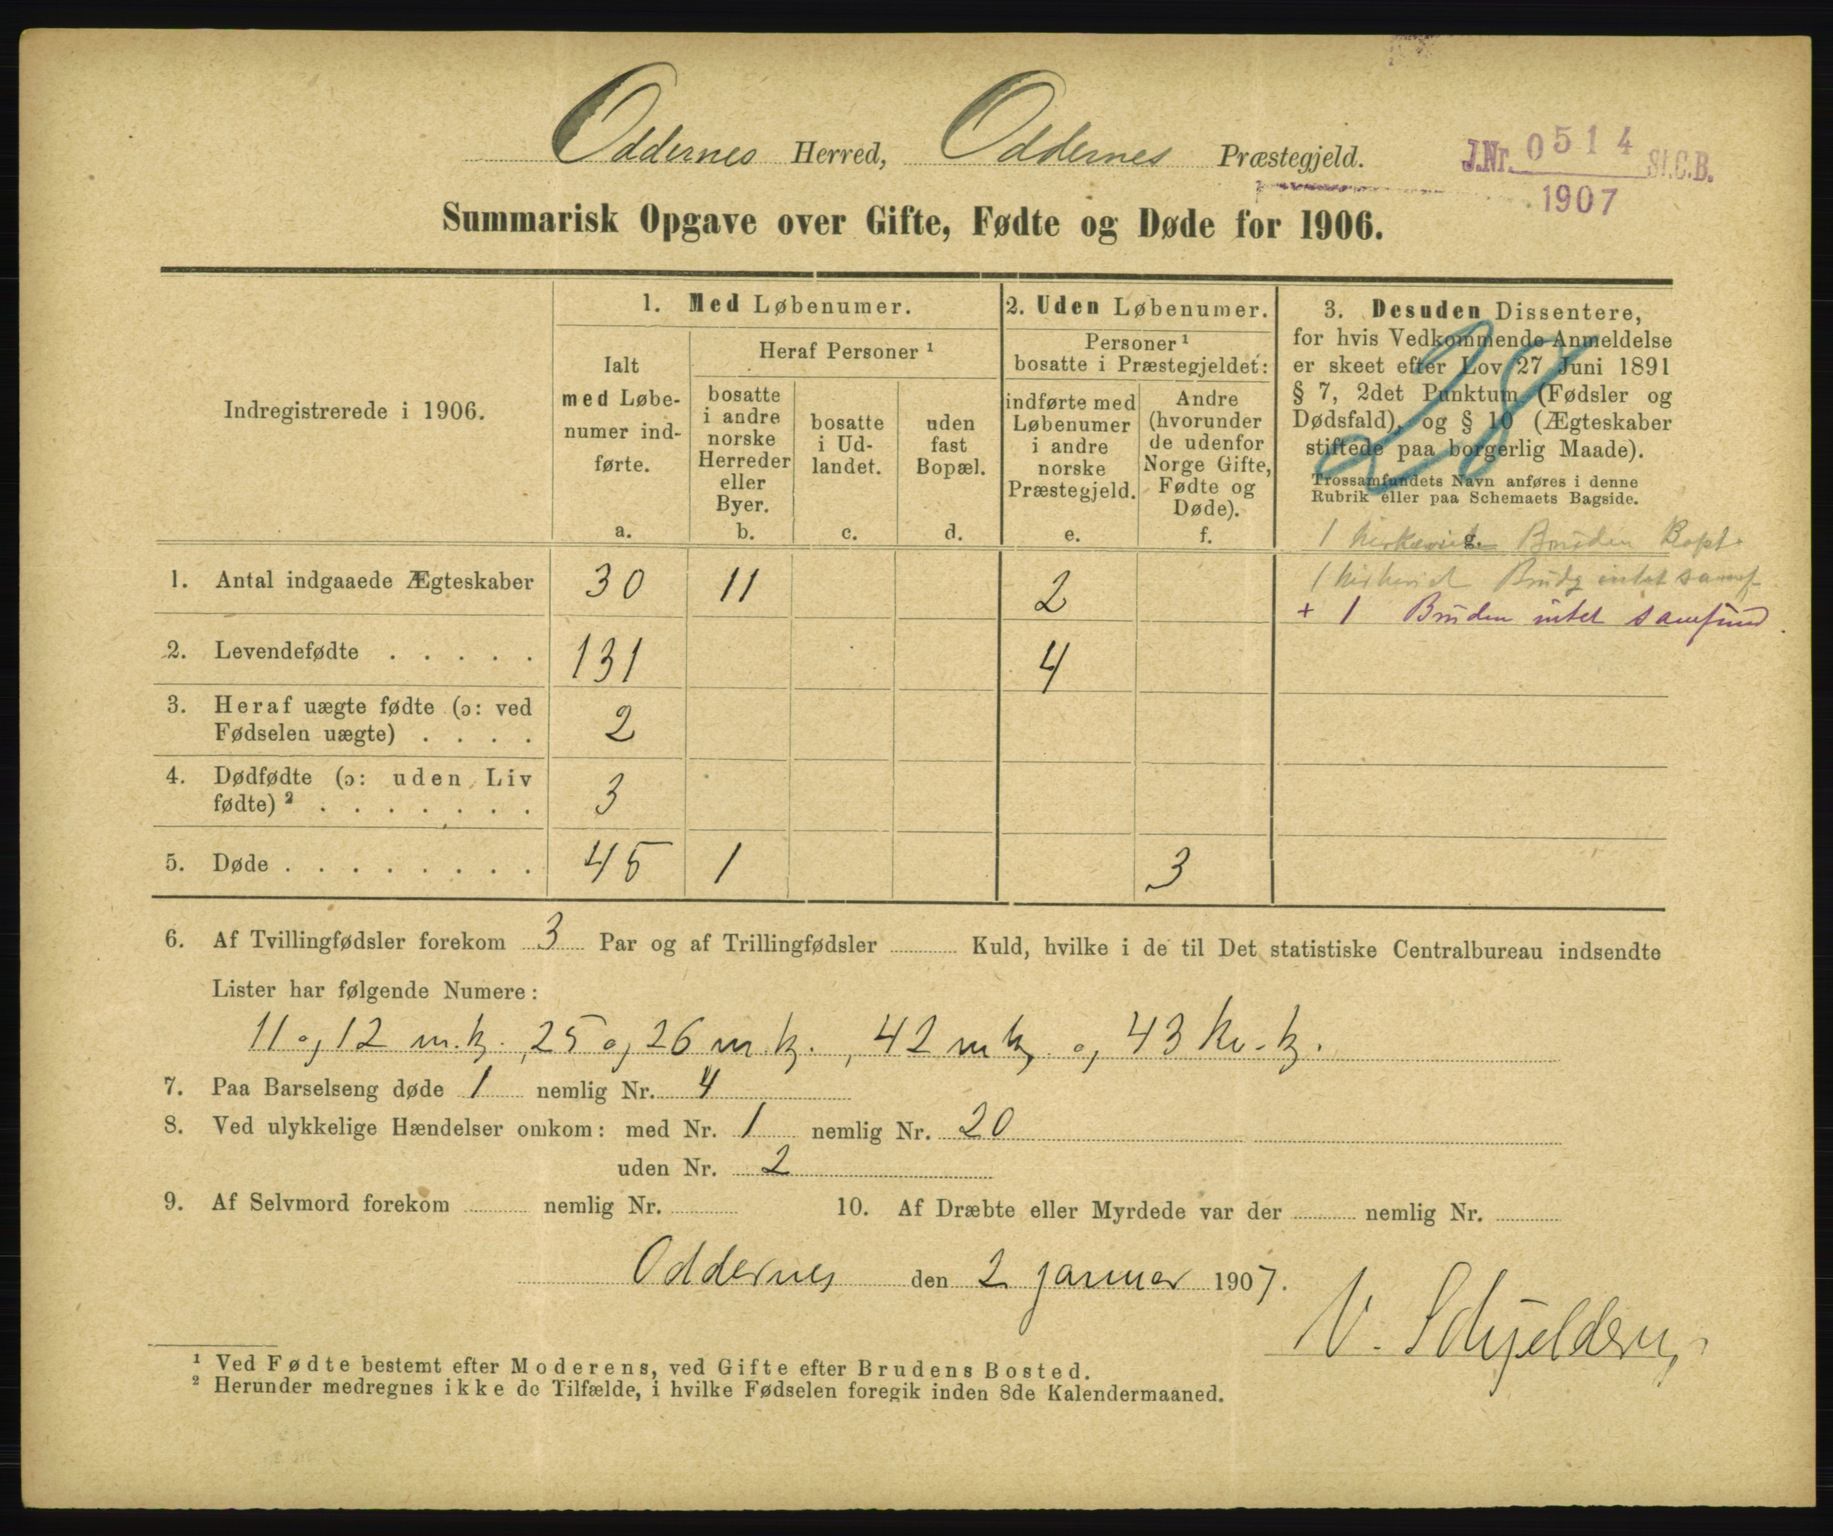 Oddernes Herred, Oddernes Præstegjeld.
J.Nr. 0514 St.C.B.
1907
Summarisk Opgave over Gifte, Fødte og Døde for 1906.
Indregistrerede i 1906.
1. Med Løbenumer.
Ialt med Løbe-numer ind-førte.
a.
Heraf Personer ¹
bosatte i andre norske Herreder eller Byer.
b.
bosatte i Ud-landet.
c.
uden fast Bopæl.
d.
2. Uden Løbenumer.
Personer ¹
bosatte i Præstegjeldet:
indførte med Løbenumer i andre norske Præstegjeld.
e.
Andre (hvorunder de udenfor Norge Gifte, Fødte og Døde).
f.
3. Desuden Dissentere,
for hvis Vedkommende Anmeldelse
er skeet efter Lov 27 Juni 1891
§ 7, 2det Punktum (Fødsler og
Dødsfald), og § 10 (Ægteskaber
stiftede paa borgerlig Maade).
Trossamfundets Navn anføres i denne
Rubrik eller paa Schemaets Bagside.
g.
28
1 Bruden Bapt.
1. Antal indgaaede Ægteskaber 30 11 2 1 intet samf.
+ 1 Bruden intet samfund.
2. Levendefødte . . . . . 131 4
3. Heraf uægte fødte (ɔ: ved
Fødselen uægte) . . . . 2
4. Dødfødte (ɔ: uden Liv
fødte) ² . . . . . . . 3
5. Døde . . . . . . . . 45 1 3
6. Af Tvillingfødsler forekom 3 Par og af Trillingfødsler Kuld, hvilke i de til Det statistiske Centralbureau indsendte
Lister har følgende Numere:
11 og 12 m.k., 25 og 26 m.k., 42 m k. og 43 Kv.k.
7. Paa Barselseng døde 1 nemlig Nr. 4
8. Ved ulykkelige Hændelser omkom: med Nr. 1 nemlig Nr. 20
uden Nr. 2
9. Af Selvmord forekom nemlig Nr. 10. Af Dræbte eller Myrdede var der nemlig Nr.
Oddernes den 2 januar 1907.
¹ Ved Fødte bestemt efter Moderens, ved Gifte efter Brudens Bosted.
² Herunder medregnes ikke de Tilfælde, i hvilke Fødselen foregik inden 8de Kalendermaaned.